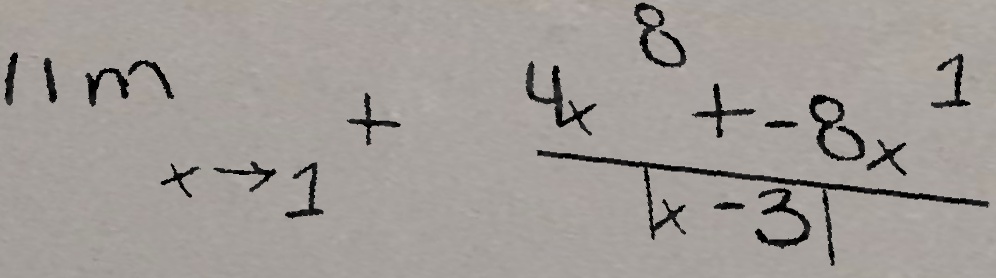 lim x→1^+ \frac{4x^8 + -8x^1}{|x-3|}